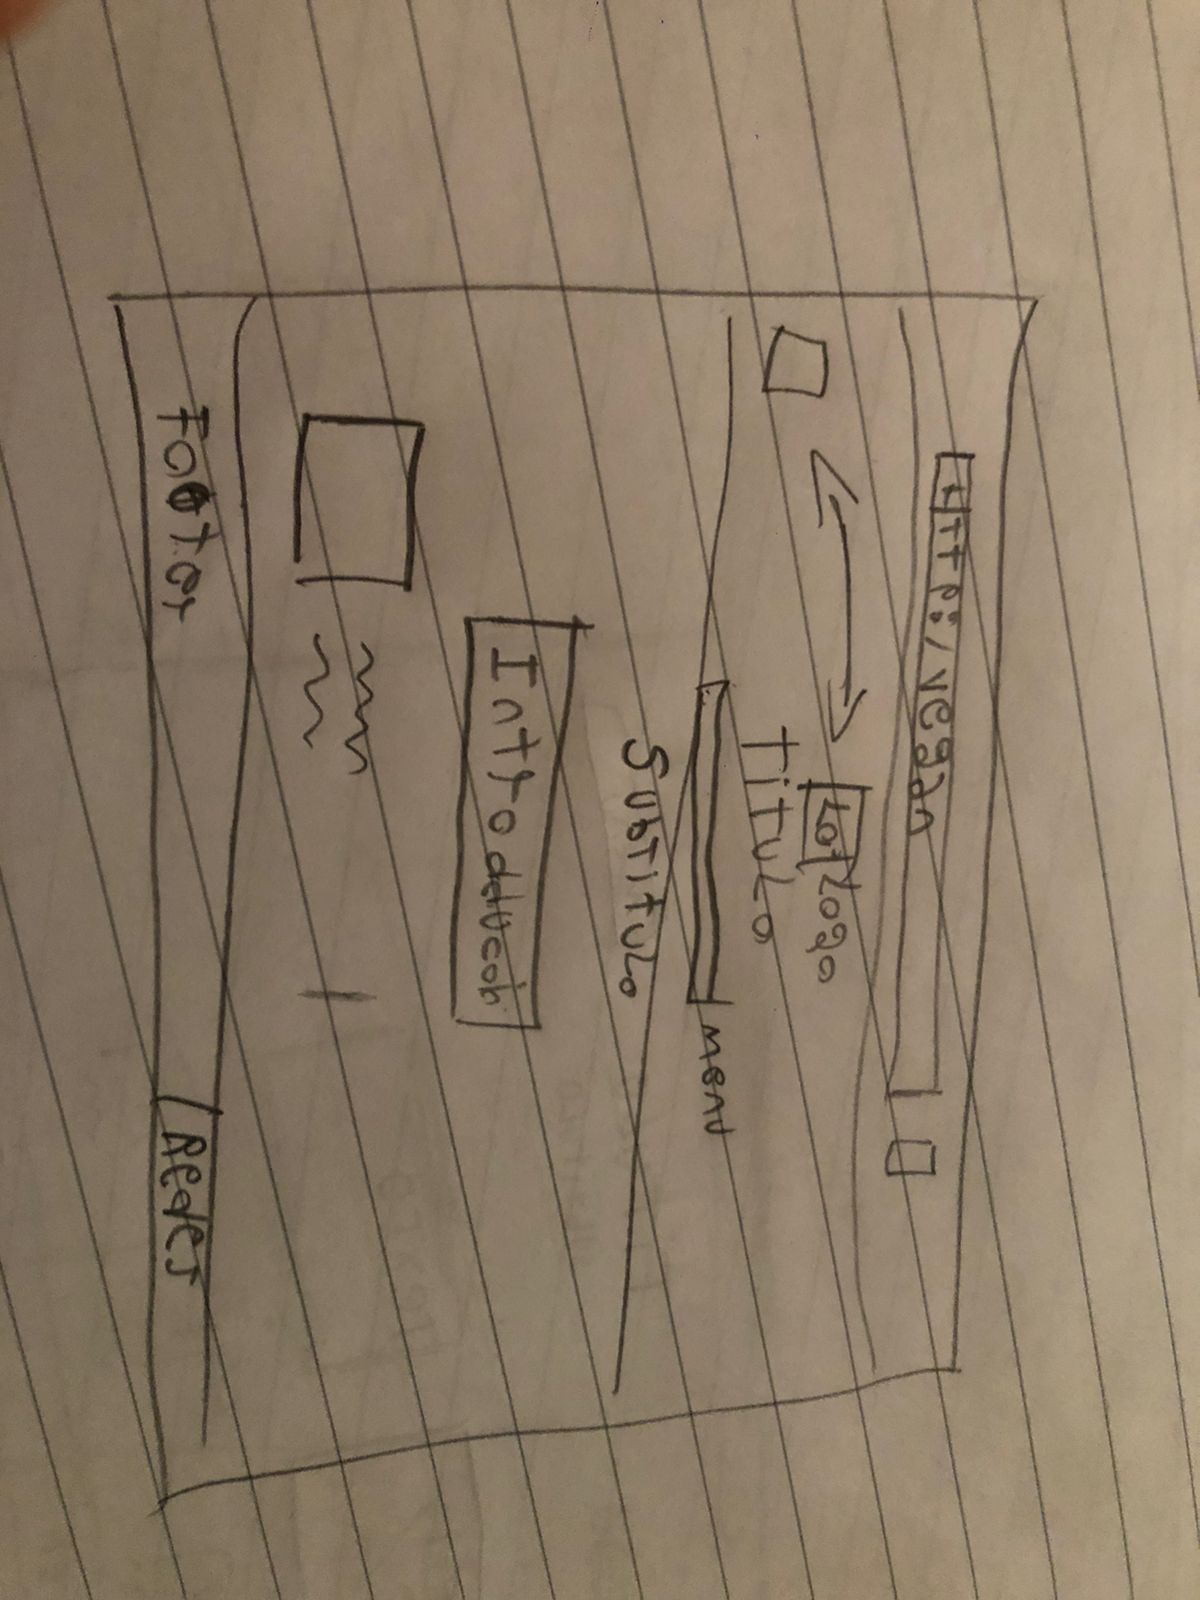 HTTP:/vegan
Logo
Titulo
menu
Subtitulo
Introducción
Footer
Redes